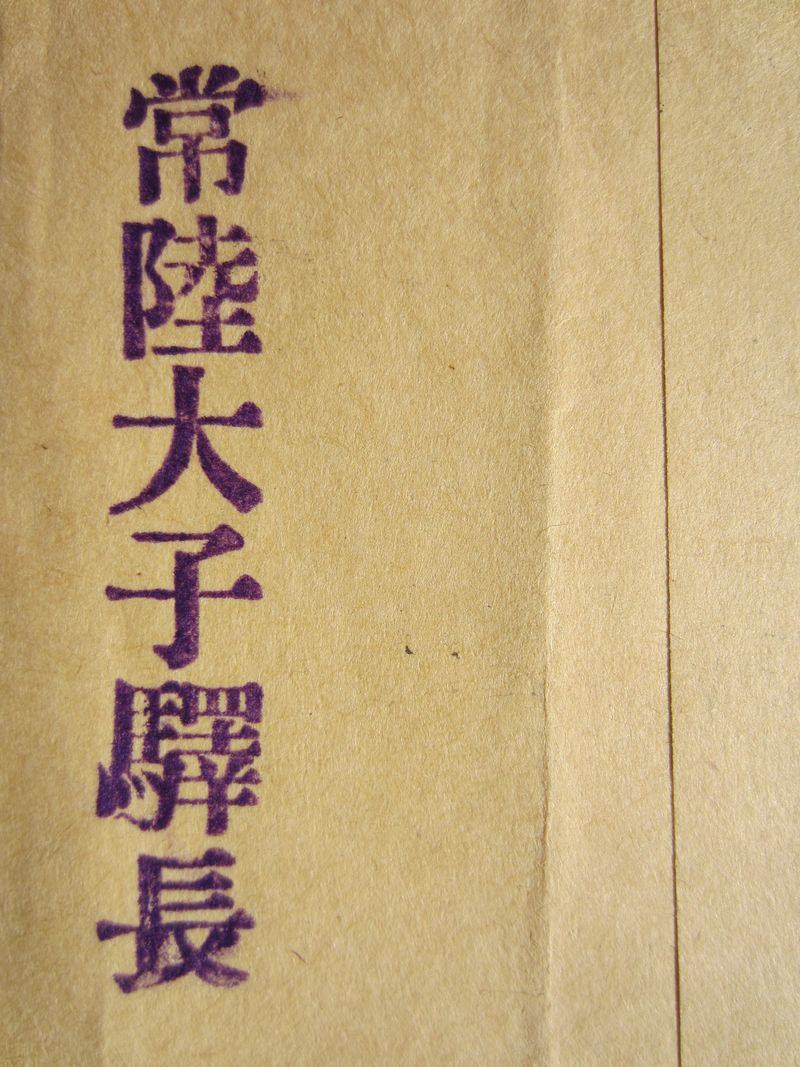 常陸大子驛長